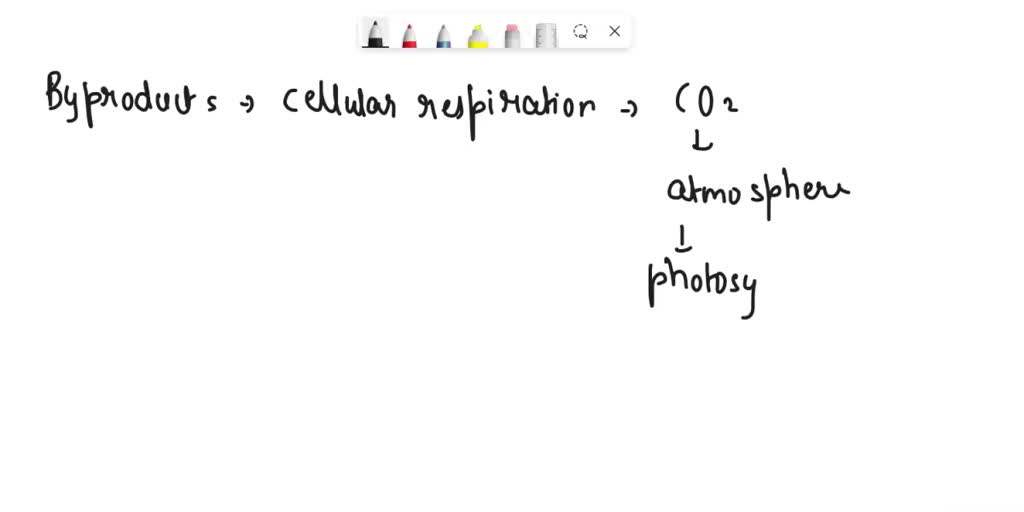 Byproducts → cellular respiration → CO2
↓
atmosphere
↓
photosy